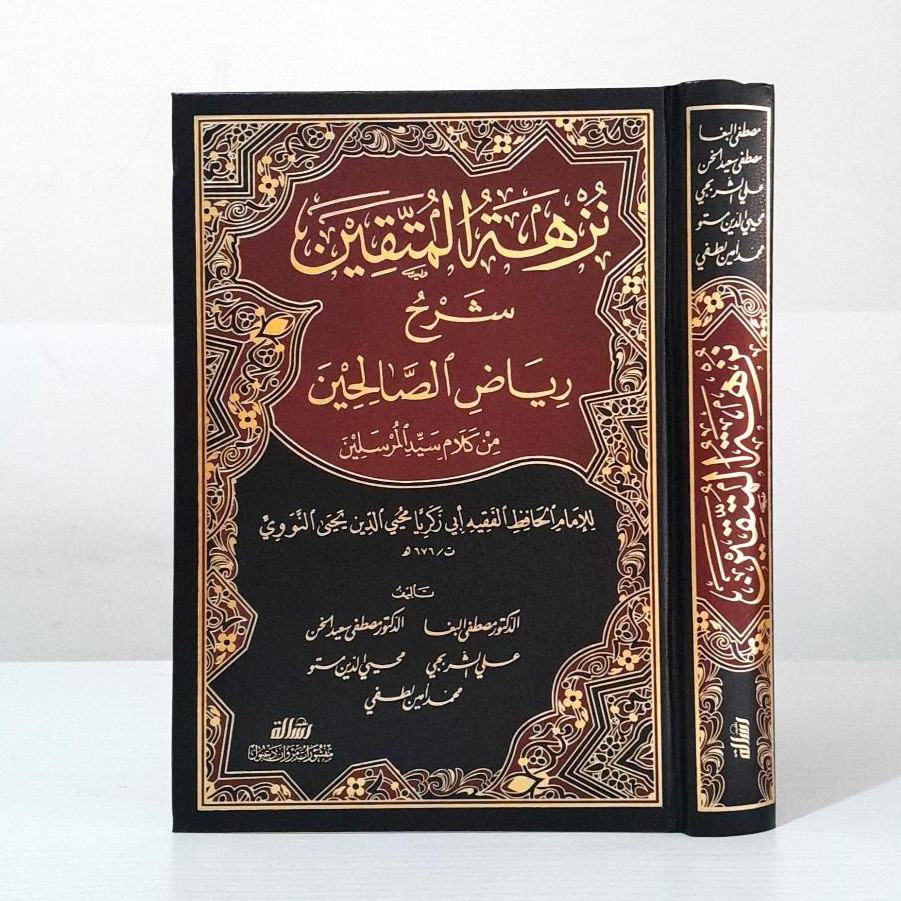 نُزْهَةُ المُتَّقِينَ
شَرْحُ
رِيَاضِ الصَّالِحِيْنَ
مِنْ كَلَامِ سَيِّدِ المُرْسَلِيْنَ
لِلإِمَامِ الحَافِظِ الفَقِيهِ أَبِي زَكَرِيَّا مُحْيِي الدِّين يَحْيَى النَّوَوِيِّ
ت/٦٧٦ هـ
تأليف
الدكتور مصطفى البغا الدكتور مصطفى سعيد الخن
علي الشربجي محيي الدين مستو
محمد أمين لطفي
رسالة
منشورات مروان دعبول
مصطفى البغا
مصطفى سعيد الخن
علي الشربجي
محيي الدين مستو
محمد أمين لطفي
نُزْهَةُ المُتَّقِينَ
رسالة